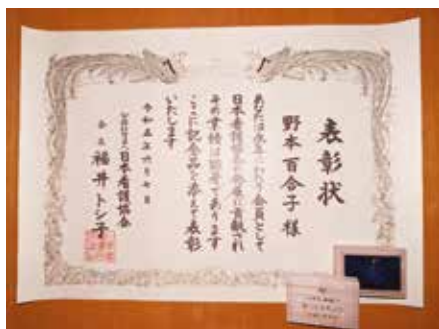 表彰状
野本百合子様
あなたは永年にわたり会員として
日本看護協会の発展に貢献され
その業績は顕著であります
ここに記念品を添えて表彰
いたします
令和五年六月七日
公益社団法人日本看護協会
会長 福井トシ子